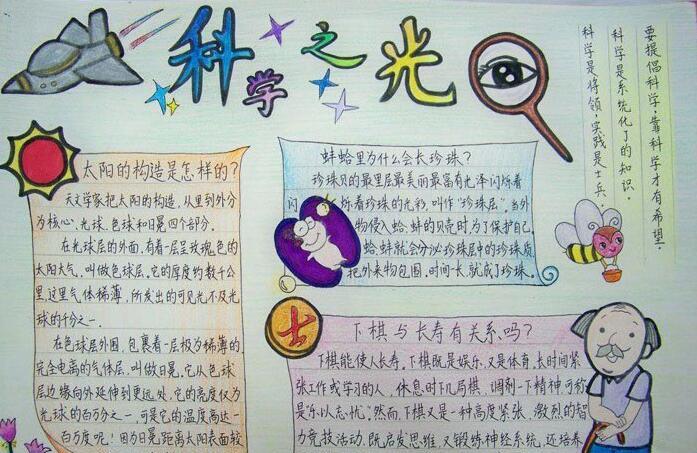 科学之光
要提倡科学,靠科学才有希望。
科学是系统化了的知识。
科学是将领,实践是士兵。
太阳的构造是怎样的?
天文学家把太阳的构造,从里到外分
为核心、光球、色球和日冕四个部分。
在光球层的外面,有着一层呈玫瑰色的
太阳大气。叫做色球层。它的厚度约数千公
里,这里气体稀薄,所发出的可见光不及光
球的千分之一。
在色球层外围,包裹着一层极为稀薄的
完全电离的气体层,叫做日冕。它从色球
层边缘向外延伸到更远处,它的亮度仅为
光球的百万分之一,可是它的温度高达一
百万度呢!因为日冕距离太阳表面较
蚌蛤里为什么会长珍珠?
珍珠贝的最里层最美丽最富有光泽闪烁着
闪烁着珍珠的光彩,叫作“珍珠层”。当外
物侵入蛤、蚌的贝壳时,为了保护自己。
蛤、蚌就会分泌珍珠层中的珍珠质
把外来物包围,时间一长,就成了珍珠。
士
下棋与长寿有关系吗?
下棋能使人长寿。下棋既是娱乐,又是体育,长时间紧
张工作或学习的人,休息时下几局棋,调剂一下精神,可称
是乐以忘忧。然而,下棋又是一种高度紧张、激烈的智
力竞技活动,既启发思维,又锻炼神经系统,还培养